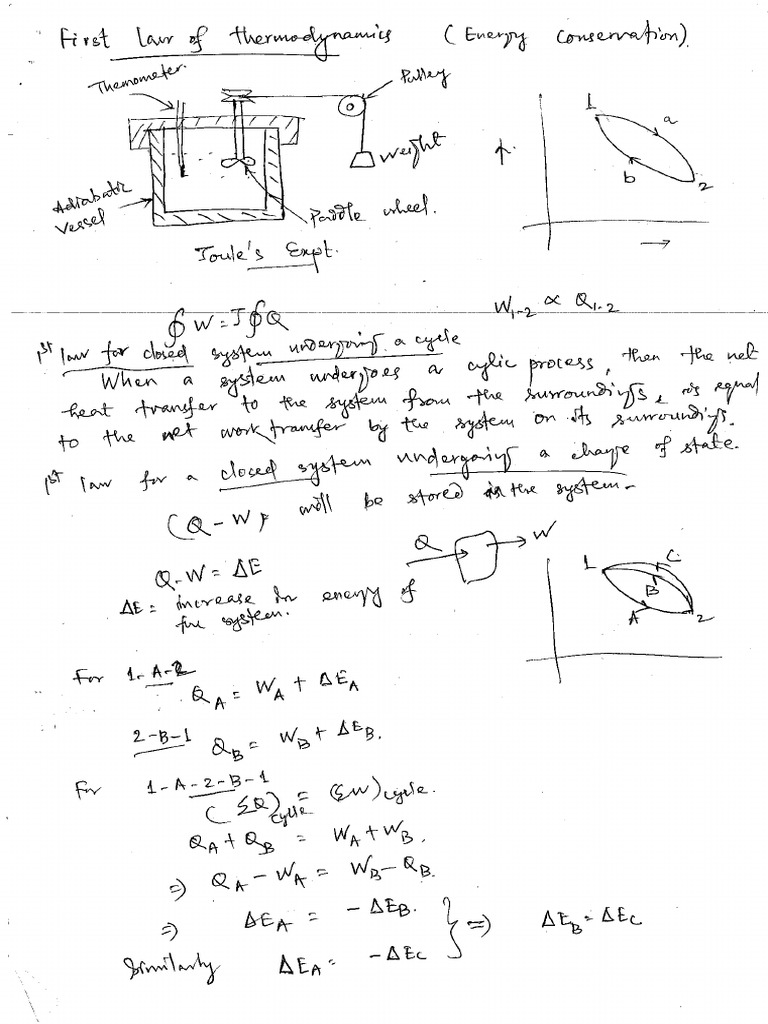 First law of thermodynamics (Energy conservation).
Themometer.
Pulley
Weight
Adiabatic
Vessel
Paddle wheel.
Joule's Expt.
p.
1
a
b
2
∮W = J∮Q
W₁₋₂ ∝ Q₁₋₂
1st law for closed system undergoing a cycle
When a system undergoes a cylic process, then the net
heat transfer to the system from the surroundings, is equal
to the net work transfer by the system on its surroundings.
1st law for a closed system undergoing a change of state.
(Q - W) will be stored in the system.
Q
W
Q - W = ΔE
ΔE = increase in energy of
the system.
1
C
B
A
2
For 1-A-2
Q_A = W_A + ΔE_A
2-B-1
Q_B = W_B + ΔE_B.
For 1-A-2-B-1
(ΣQ)cycle = (ΣW)cycle.
Q_A + Q_B = W_A + W_B.
⇒ Q_A - W_A = W_B - Q_B.
⇒ ΔE_A = - ΔE_B.
Similarly ΔE_A = - ΔE_C
} ⇒ ΔE_B = ΔE_C